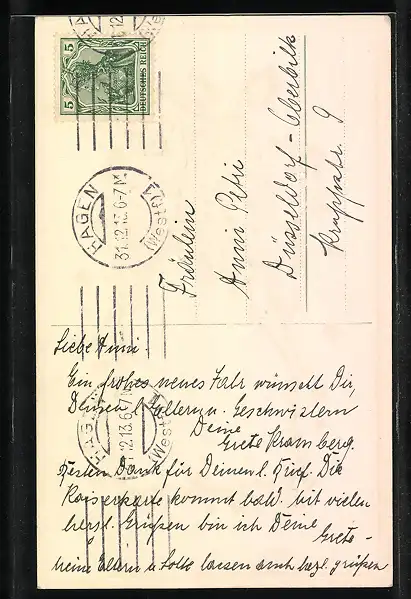 5
5
DEUTSCHES REICH
HAGEN
(Westf.)
31.12.13.6-7N
Fräulein
Anni Petri
Düsseldorf-Oberbilk
Kruppstr. 9
Liebe Anni
Ein frohes neues Jahr wünscht Dir,
Deinen l. Eltern u. Geschwistern
Deine
Grete Kramberg.
Besten Dank für Deinen l. Brief. Die
Kaiserkarte kommt bald. Mit vielen
herzl. Grüßen bin ich Deine
Grete-
Meine Eltern u. lassen auch herzl. grüßen